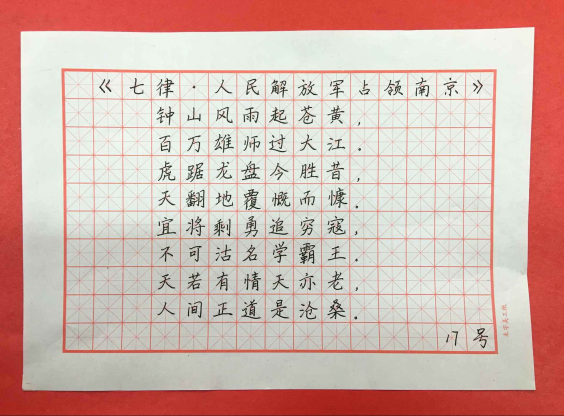 《七律·人民解放军占领南京》
钟山风雨起苍黄，
百万雄师过大江.
虎踞龙盘今胜昔，
天翻地覆慨而慷.
宜将剩勇追穷寇，
不可沽名学霸王.
天若有情天亦老，
人间正道是沧桑.
17号